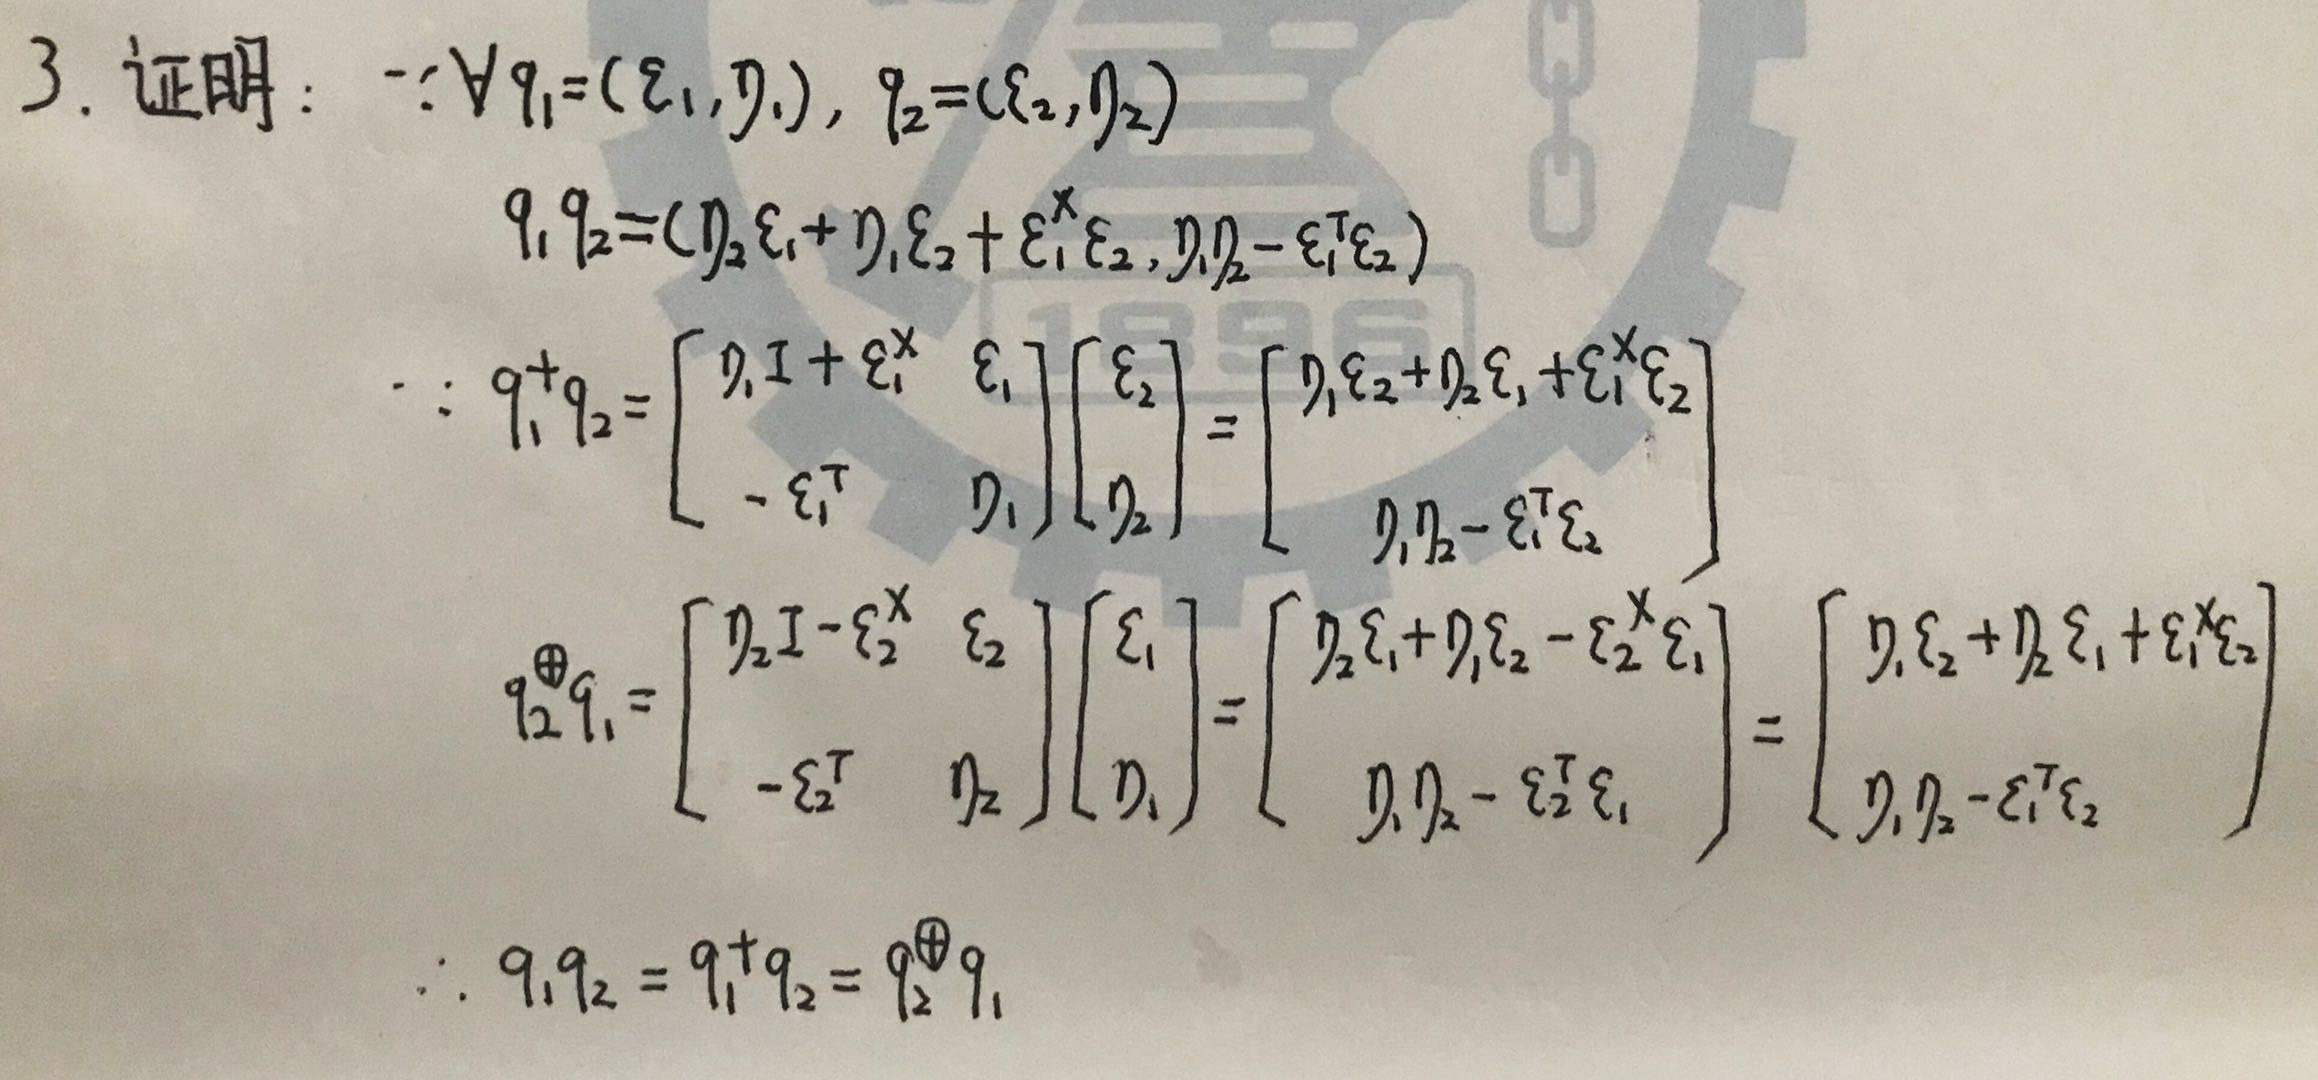 3. 证明: ∵∀q₁=(ε₁,η₁), q₂=(ε₂,η₂)
q₁q₂=(η₂ε₁+η₁ε₂+ε₁ˣε₂, η₁η₂-ε₁ᵀε₂)
1896
∵ q₁⁺q₂=[η₁I+ε₁ˣ ε₁; -ε₁ᵀ η₁][ε₂; η₂]=[η₁ε₂+η₂ε₁+ε₁ˣε₂; η₁η₂-ε₁ᵀε₂]
q₂^⊕q₁=[η₂I-ε₂ˣ ε₂; -ε₂ᵀ η₂][ε₁; η₁]=[η₂ε₁+η₁ε₂-ε₂ˣε₁; η₁η₂-ε₂ᵀε₁]=[η₁ε₂+η₂ε₁+ε₁ˣε₂; η₁η₂-ε₁ᵀε₂]
∴ q₁q₂=q₁⁺q₂=q₂^⊕q₁